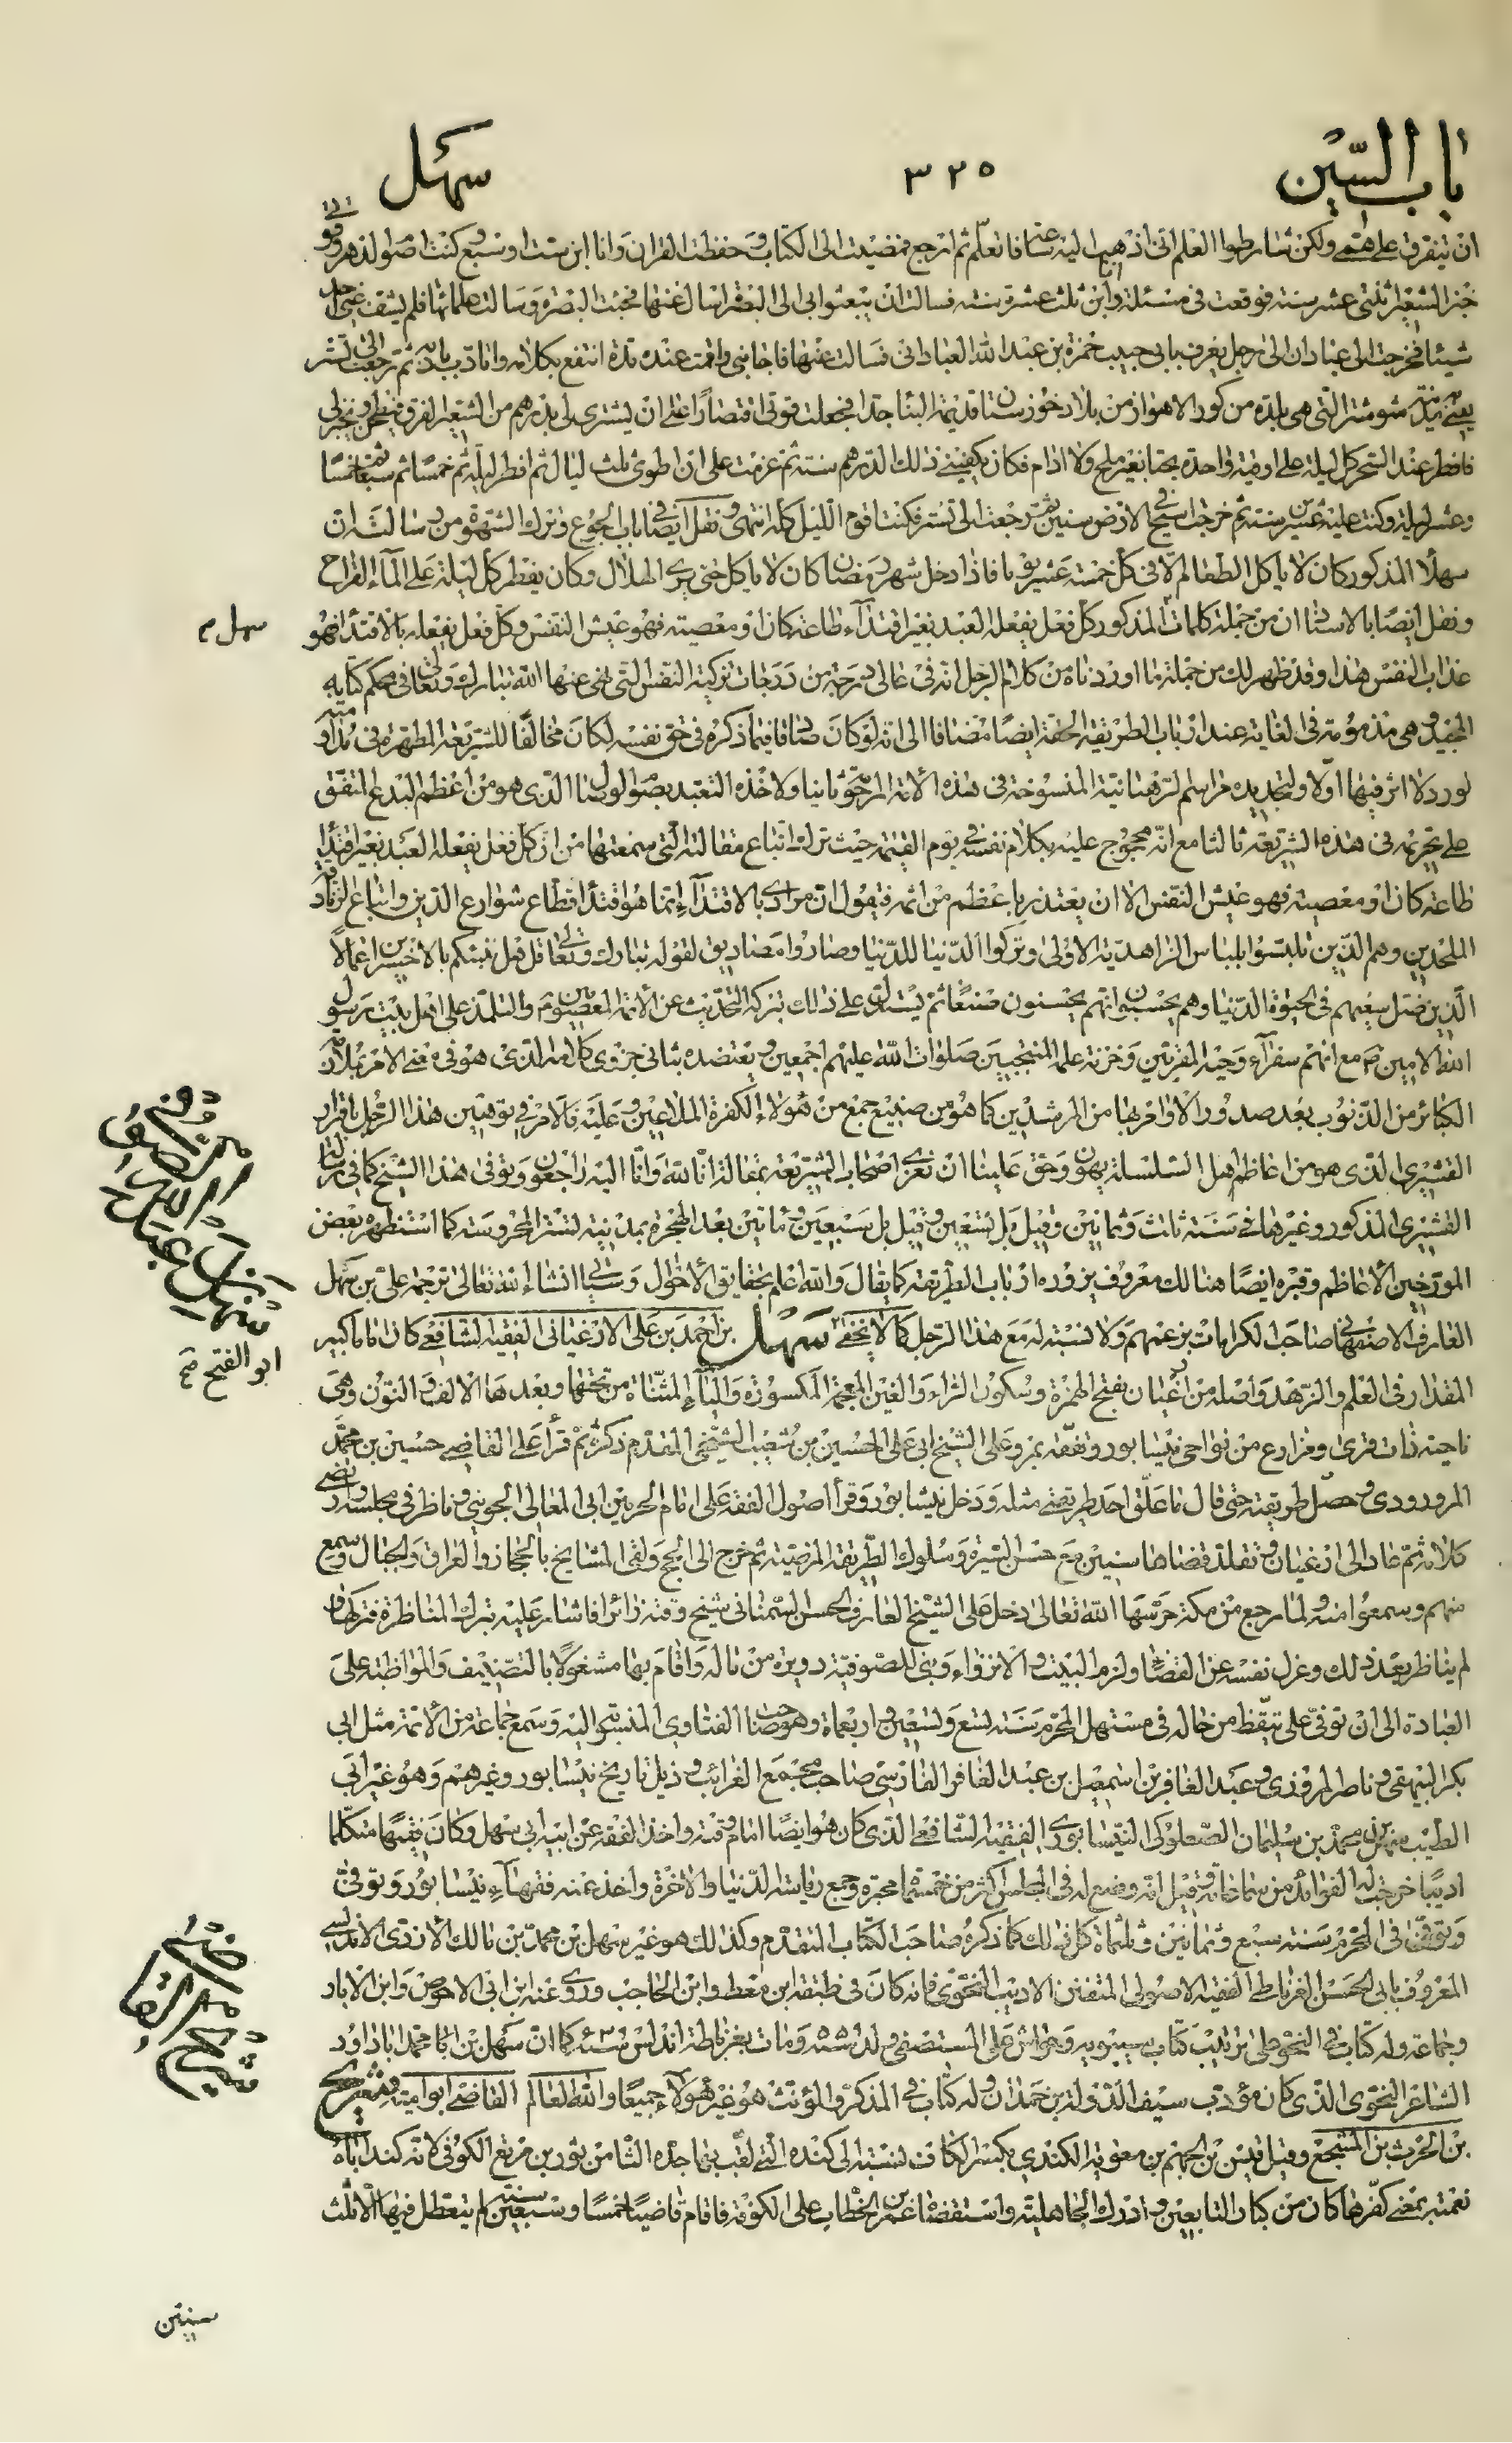 باب السّین ٣٢٥ سهل
ان یتفرق علی همتی ولکن شارطوا المعلم انی اذهب الیه ساعة فاتعلم ثم ارجع فمضیت الی الکتاب وحفظت القران وانا ابن ست او سبع وکنت اصوم الدهر وقوتی
خبز الشعیر اثنتی عشر سنة فوقعت لی مسئلة وابن ثلث عشرة سنة فسالت ان یبعثوا بی الی البصرة اسال عنها فجئت البصرة وسالت علمائها فلم یشف عنی احد
شیئا فخرجت الی عبادان الی رجل یعرف بابی حبیب حمزة بن عبد الله العبادانی فسالته عنها فاجابنی واقمت عنده مدة انتفع بکلامه واتادب بادبه ثم رجعت الی تستر
یعنی مدینة شوشتر التی هی بلدة من کور الاهواز من بلاد خوزستان قدیمة البناء جدا فجعلت قوتی اقتصارا علی ان یشتری لی بدرهم من الشعیر الفرق فیطحن ویخبز لی
فافطر عند السحر کل لیلة علی اوقیة واحدة بحتا بغیر ملح ولا ادام فکان یکفینی ذلک الدرهم سنة ثم عزمت علی ان اطوی ثلث لیال ثم افطر لیلة ثم خمسا ثم سبعا ثم خمسا
وعشر لیلة وکنت علیه عشرین سنة ثم خرجت اسیح فی الارض سنین ثم رجعت الی تستر فکنت اقوم اللیل کله انتهی ونقل ایضا فی باب الجوع وترک الشهوة من رسالته ان
سهلا المذکور کان لا یاکل الطعام الا فی کل خمسة عشر یوما فاذا دخل شهر رمضان کان لا یاکل حتی یری الهلال وکان یفطر کل لیلة علی المآء القراح
ونقل ایضا بالاسناد ان من جملة کلمات المذکور کل فعل یفعله العبد بغیر اقتدآء طاعة کان او معصیة فهو عیش النفس وکل فعل یفعله بالاقتداء فهو
سهل م
عذاب النفس هذا وقد ظهر لک من جملة ما اوردناه من کلام الرجل انه فی عالی درجة من درجات تزکیة النفس التی نهی عنها الله تبارک وتعالی فی محکم کتابه
المجید وهی مذمومة فی الغایة عند ارباب الطریقة الحقة ایضا مضافا الی انه لو کان صادقا فیما ذکره فی حق نفسه لکان مخالفا للشریعة المطهرة فی مداومته
لورد لا اثر فیها اولا ولتجدیده مراسم الرهبانیة المنسوخة فی هذه الامة المرحومة ثانیا ولاخذه التعبد بصوم الوصال الذی هو من اعظم البدع المتفق
علی تحریمه فی هذه الشریعة ثالثا مع انه محجوج علیه بکلام نفسه فی یوم القیمة حیث ترک اتباع مقالته التی سمعتها من ان کل فعل یفعله العبد بغیر اقتداء
طاعة کان او معصیة فهو عیش النفس الا ان یعتذر باعظم من اثمه فیقول ان مرادی بالاقتدآء انما هو اقتداء قطاع شوارع الدین واتباع الزنادقة
الملحدین وهم الذین تلبسوا بلباس الزاهدیة الاولی وترکوا الدنیا للدنیا وصاروا مصادیق لقوله تبارک وتعالی قل هل ننبئکم بالاخسرین اعمالا
الذین ضل سعیهم فی الحیوة الدنیا وهم یحسبون انهم یحسنون صنعا ثم یستدل علی ذلک بترکه التحدیث عن الائمة المعصومین والتلمذ علی اهل بیت رسول
الله الامین ص مع انهم سفرآء وحیه المقربین وخزنة علمه المنتجبین صلوات الله علیهم اجمعین ویعتضده بثانی جزوی کلامه الذی هو فی معنی الامر بملازمة
الکبائر من الذنوب بعد صدور الاوامر بها من المرشدین کما هو من صنیع جمع من هؤلاء الکفرة الملاعین وعلیه فالامر فی توهین هذا الرجل باقرار
القشیری الذی هو من اعاظم اهل السلسلة یهون وحق علینا ان نعزی اصحاب الشریعة بمقالة انا لله وانا الیه راجعون وتوفی هذا الشیخ کما فی رسالة
القشیری المذکور وغیرها فی سنة ثلاث وثمانین وقیل بل تسعین وقیل بل سبعین ومأتین بعد الهجرة بمدینة تستر المحروسة کما استظهره بعض
المورخین الاعاظم وقبره ایضا هنالک معروف یزوره ارباب الطریقة کما یقال والله اعلم بحقایق الاحوال وسیاتی انشاء الله تعالی ترجمة علی بن سهل
وفی نسخة
سهل بن عبد الله
ابو الفتح
العارف الاصفهانی صاحب الکرامات بزعمهم ولا نسبة له مع هذا الرجل کما لا یخفی سهل بن احمد بن علی الارغیانی الفقیه الشافعی کان اماما کبیر
المقدار فی العلم والزهد واصله من ارغیان بفتح الهمزة وسکون الراء والغین المعجمة المکسورة والیآء المثناة من تحتها وبعدها الالف والنون وهی
ناحیة ذات قری ومزارع من نواحی نیشابور وتفقه بمرو علی الشیخ ابی علی الحسین بن شعیب السنجی المقدم ذکره ثم قرأ علی القاضی حسین بن محمد
المرورودی وحصل طریقته حتی قال ما علق احد طریقتی مثله ودخل نیشابور وقرأ اصول الفقه علی امام الحرمین ابی المعالی الجوینی وناظر فی مجلسه وارتضی
کلامه ثم عاد الی ارغیان وتقلد قضاها سنین مع حسن السیرة وسلوک الطریقة المرضیة ثم خرج الی الحج ولقی المشایخ بالحجاز والعراق والجبال وسمع
منهم وسمعوا منه ولما رجع من مکة حرسها الله تعالی دخل علی الشیخ العارف الحسن السمنانی شیخ وقته زائرا فاشار علیه بترک المناظرة فترکها و
لم یناظر بعد ذلک وعزل نفسه عن القضاء ولزم البیت والانزواء وبنی للصوفیة دویرة من ماله واقام بها مشغولا بالتصنیف والمواظبة علی
العبادة الی ان توفی علی تیقظ من حاله فی مستهل المحرم سنة تسع وتسعین واربعمأة وهو صاحب الفتاوی المنسوبة الیه وسمع جماعة من الائمة مثل ابی
بکر البیهقی وناصر المروزی وعبد الغافر بن اسمعیل بن عبد الغافر الفارسی صاحب مجمع الغرائب وذیل تاریخ نیسابور وغیرهم وهو غیر ابی
الطیب سهل بن محمد بن سلیمان الصعلوکی النیسابوری الفقیه الشافعی الذی کان هو ایضا امام وقته واخذ الفقه عن ابیه ابی سهل وکان فقیها متکلما
ادیبا خرجت له الفوائد من سماعاته وقیل انه وضع له فی المجلس اکثر من خمسمأة محبرة وجمع ریاسة الدنیا والاخرة واخذ عنه فقهآء نیسابور وتوفی
وتوفی فی المحرم سنة سبع وثمانین وثلثمأة کل ذلک کما ذکره صاحب الکتاب المتقدم وکذلک هو غیر سهل بن محمد بن مالک الازدی الاندلسی
المعروف بابی الحسن الغرناطی الفقیه الاصولی المتفنن الادیب النحوی فانه کان فی طبقة ابن معط وابن الحاجب وروی عنه ابن ابی الاحوص وابن الابار
وجماعة وله کتاب فی النحو علی ترتیب کتاب سیبویه وحواش علی المستصفی ولد سنة ٥٥٩ ومات بغرناطة اندلس کما ان سهل بن محمد ابا داود
الشاعر النحوی الذی کان مؤدب سیف الدولة بن حمدان وله کتاب فی المذکر والمؤنث هو غیر هؤلاء جمیعا والله العالم القاضی ابو امیة شریح
شریح القاضی
بن الحرث بن المنتجع وقیل قیس بن الجهم بن معویة الکندی بکسر الکاف نسبة الی کندة التی لقب بها جده الثامن ثور بن مرتع الکوفی لانه کند اباه
نعمته بمعنی کفرها کان من کبار التابعین وادرک الجاهلیة واستقضاه عمر بن الخطاب علی الکوفة فاقام قاضیا خمسا وسبعین سنة لم یتعطل فیها الا ثلث
سنین